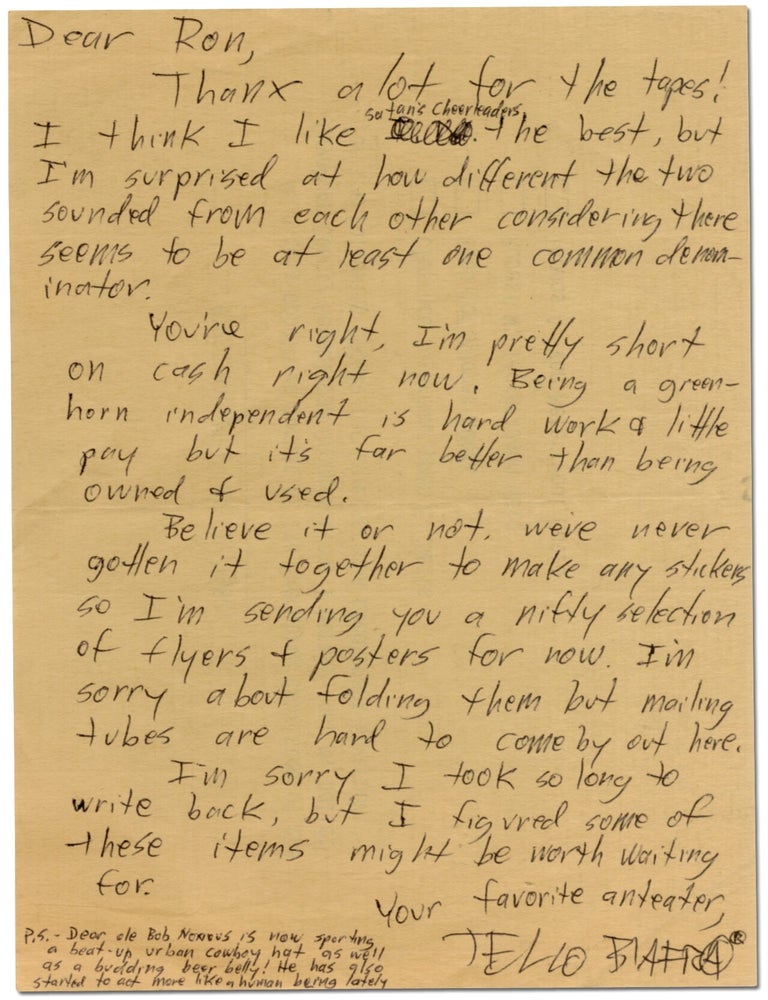 Dear Ron,
Thanx a lot for the tapes!
Satan's Cheerleaders
I think I like the best, but
I'm surprised at how different the two
sounded from each other considering there
seems to be at least one common denom-
inator.
You're right, I'm pretty short
on cash right now. Being a green-
horn independent is hard work & little
pay but it's far better than being
owned & used.
Believe it or not, we've never
gotten it together to make any stickers
so I'm sending you a nifty selection
of flyers & posters for now. I'm
sorry about folding them but mailing
tubes are hard to come by out here.
I'm sorry I took so long to
write back, but I figured some of
these items might be worth waiting
for.
Your favorite anteater,
JELLO BIAFRA®
P.S.- Dear ole Bob Noxious is now sporting
a beat-up urban cowboy hat as well
as a budding beer belly! He has also
started to act more like a human being lately